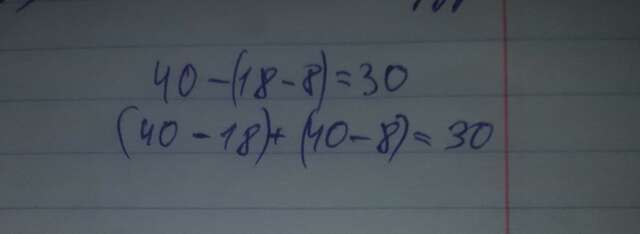 40-(18-8)=30
(40-18)+(40-8)=30